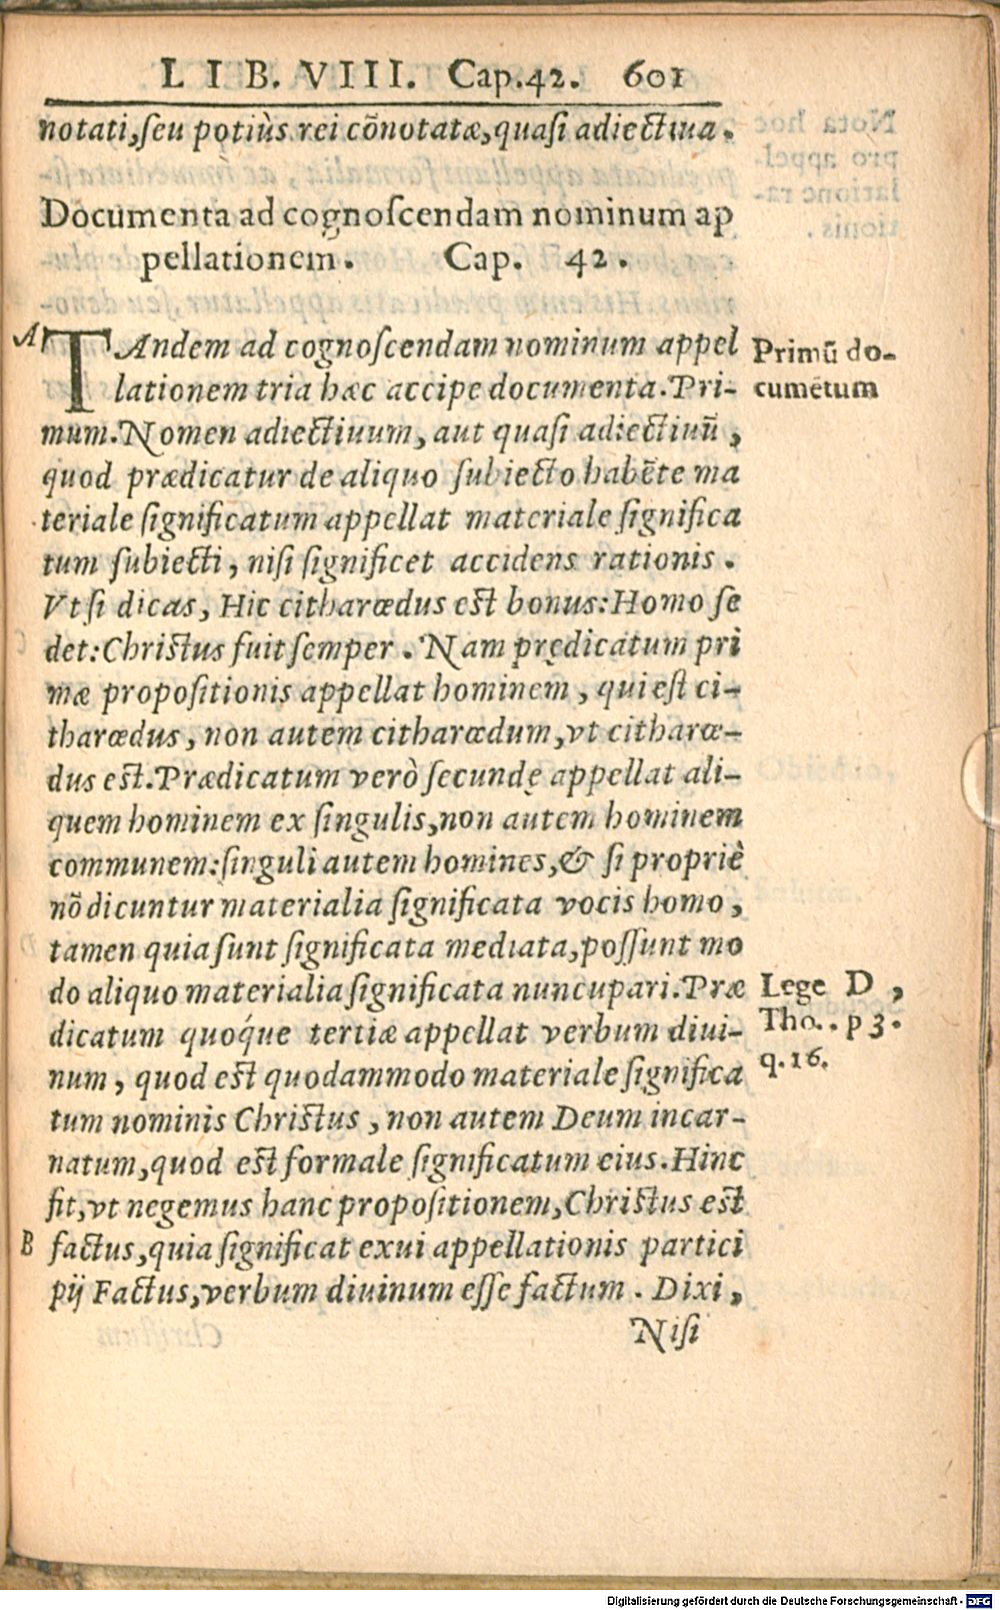 LIB. VIII. Cap. 42. 601
notati, ſeu potiùs rei cõnotatæ, quaſi adiectiua.
Documenta ad cognoſcendam nominum ap
pellationem. Cap. 42.
A TAndem ad cognoſcendam nominum appel
lationem tria hæc accipe documenta. Pri-
mum. Nomen adiectiuum, aut quaſi adiectiuũ,
quod prædicatur de aliquo ſubiecto habẽte ma
teriale ſignificatum appellat materiale ſignifica
tum ſubiecti, niſi ſignificet accidens rationis.
Vt ſi dicas, Hic citharœdus eſt bonus: Homo ſe
det: Chriſtus fuit ſemper. Nam prędicatum pri
mæ propoſitionis appellat hominem, qui eſt ci-
tharœdus, non autem citharœdum, vt citharœ-
dus eſt. Prædicatum verò ſecundę appellat ali-
quem hominem ex ſingulis, non autem hominem
communem: ſinguli autem homines, & ſi propriè
nõ dicuntur materialia ſignificata vocis homo,
tamen quia ſunt ſignificata mediata, poſſunt mo
do aliquo materialia ſignificata nuncupari. Præ
dicatum quoq́ue tertiæ appellat verbum diui-
num, quod eſt quodammodo materiale ſignifica
tum nominis Chriſtus, non autem Deum incar-
natum, quod eſt formale ſignificatum eius. Hinc
fit, vt negemus hanc propoſitionem, Chriſtus eſt
B factus, quia ſignificat ex ui appellationis partici
pij Factus, verbum diuinum eſſe factum. Dixi,
Niſi
Primũ do-
cumẽtum
Lege D,
Tho.. p 3.
q. 16.
Digitalisierung gefördert durch die Deutsche Forschungsgemeinschaft - DFG